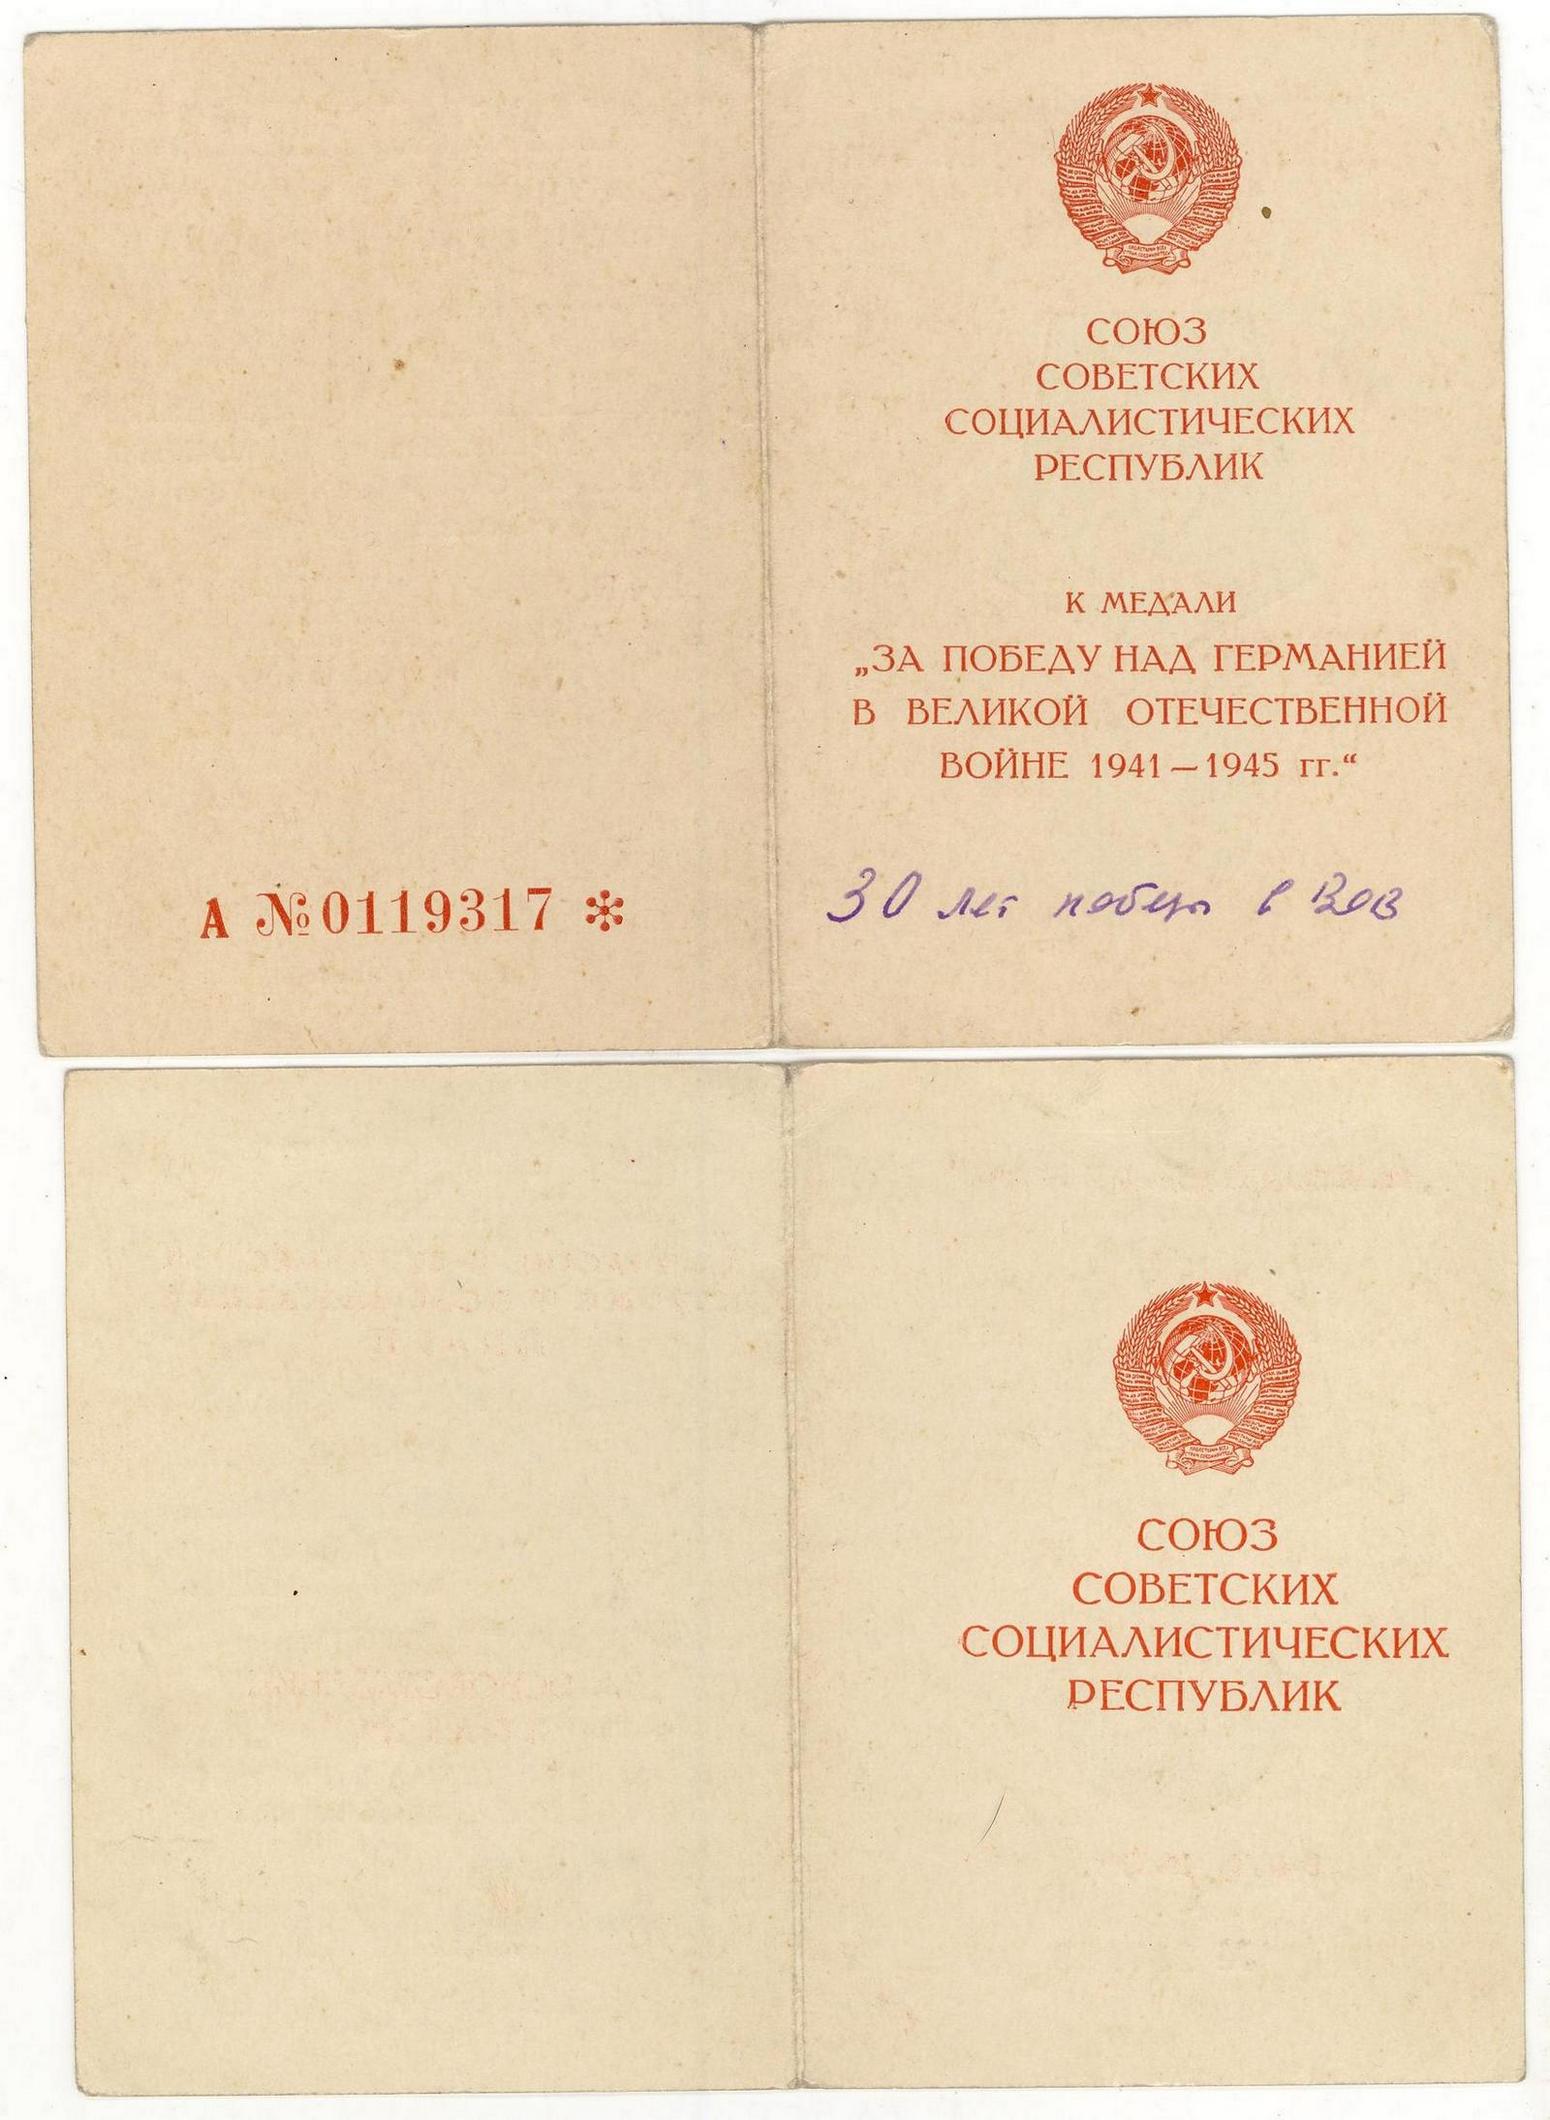 СОЮЗ
СОВЕТСКИХ
СОЦИАЛИСТИЧЕСКИХ
РЕСПУБЛИК
К МЕДАЛИ
„ЗА ПОБЕДУ НАД ГЕРМАНИЕЙ
В ВЕЛИКОЙ ОТЕЧЕСТВЕННОЙ
ВОЙНЕ 1941—1945 гг.“
30 лет победы в Вов
А № 0119317 *
СОЮЗ
СОВЕТСКИХ
СОЦИАЛИСТИЧЕСКИХ
РЕСПУБЛИК